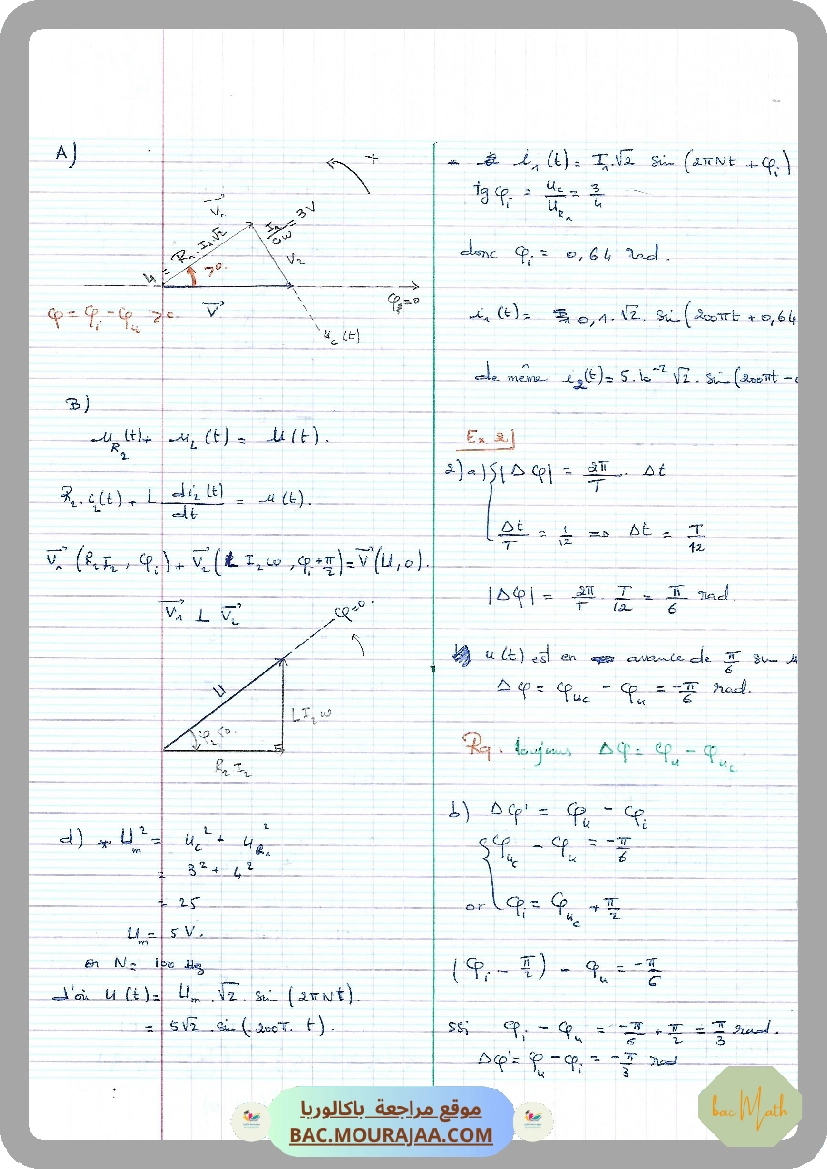 A)
+
V₁
4 = R₁.I₁√2
I₁/Cω = 3V
V₂
>0
V
φ=0
φ = φi - φu >0.
uc(t)
B)
uR₂(t) + uL(t) = u(t).
R₂.i₂(t) + L di₂(t)/dt = u(t).
V₁(R₂I₂, φi) + V₂(L I₂ω, φi+π/2) = V(U,0).
V₁ ⊥ V₂
φ=0.
U
LI₂ω
R₂I₂
d) * Um² = uc² + uR₁²
= 3² + 4²
= 25
Um = 5V.
or N = 100 Hz
d'où u(t) = Um.√2.sin(2πNt).
= 5√2.sin(200π.t).
- i₁(t) = I₁.√2 sin(2πNt + φi)
tg φi = uc/uR₁ = 3/4
donc φi = 0,64 rad.
i₁(t) = 0,1.√2.sin(200πt + 0,64
de même i₂(t) = 5.10⁻²√2.sin(200πt -
Ex 2)
2) a) {|Δφ| = 2π/T . Δt
Δt/T = 1/12 => Δt = T/12
|Δφ| = 2π/T . T/12 = π/6 rad.
u(t) est en avance de π/6 sur
Δφ = φuc - φu = -π/6 rad.
Rq. toujours Δφ = φu - φuc
b) Δφ' = φu - φi
{φuc - φu = -π/6
or φi = φuc + π/2
(φi - π/2) - φu = -π/6
ssi φi - φu = -π/6 + π/2 = π/3 rad.
Δφ' = φu - φi = -π/3 rad
موقع مراجعة باكالوريا
BAC.MOURAJAA.COM
bac Math